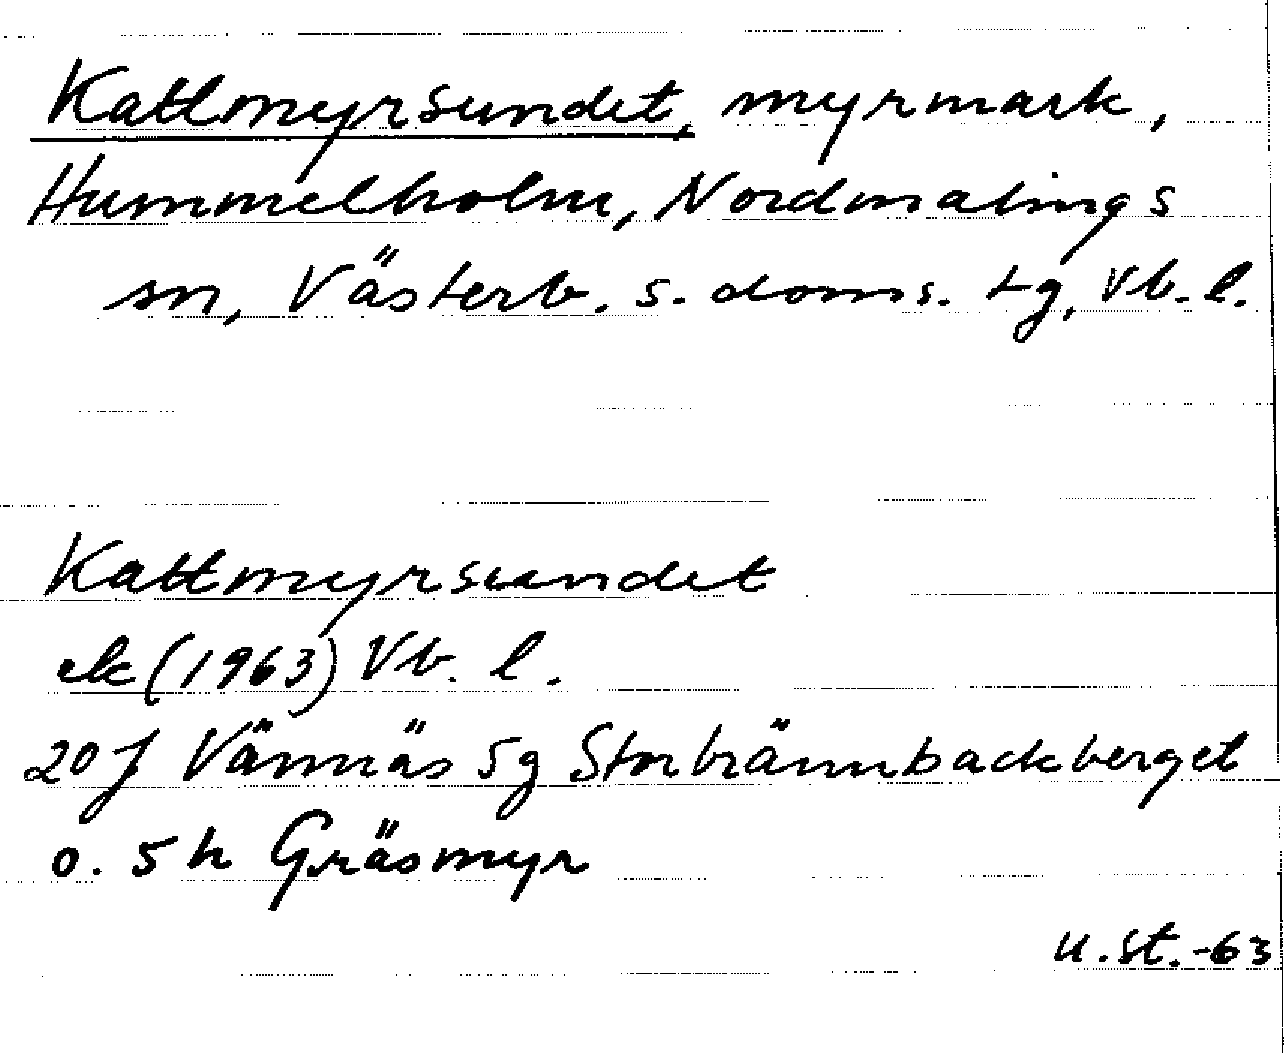 Kattmyrsundet, myrmark,
Hummelholm, Nordmalings
sn, Västerb. s. doms. tg, Vb. l.
Kattmyrsundet
ek (1963) Vb. l.
20 J Vännäs 5g Storbrännbackberget
o. 5 h Gräsmyr
u. st. -63